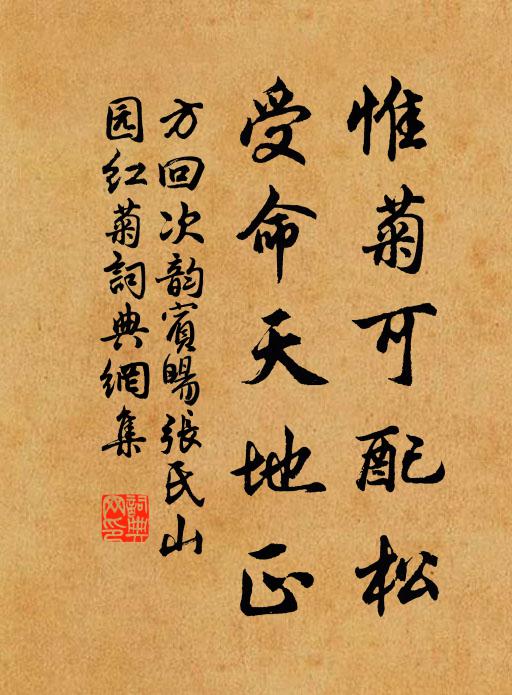 惟菊可配松
受命天地正
方回次韵宾旸張民山
园红菊詞典網集
詞典网印